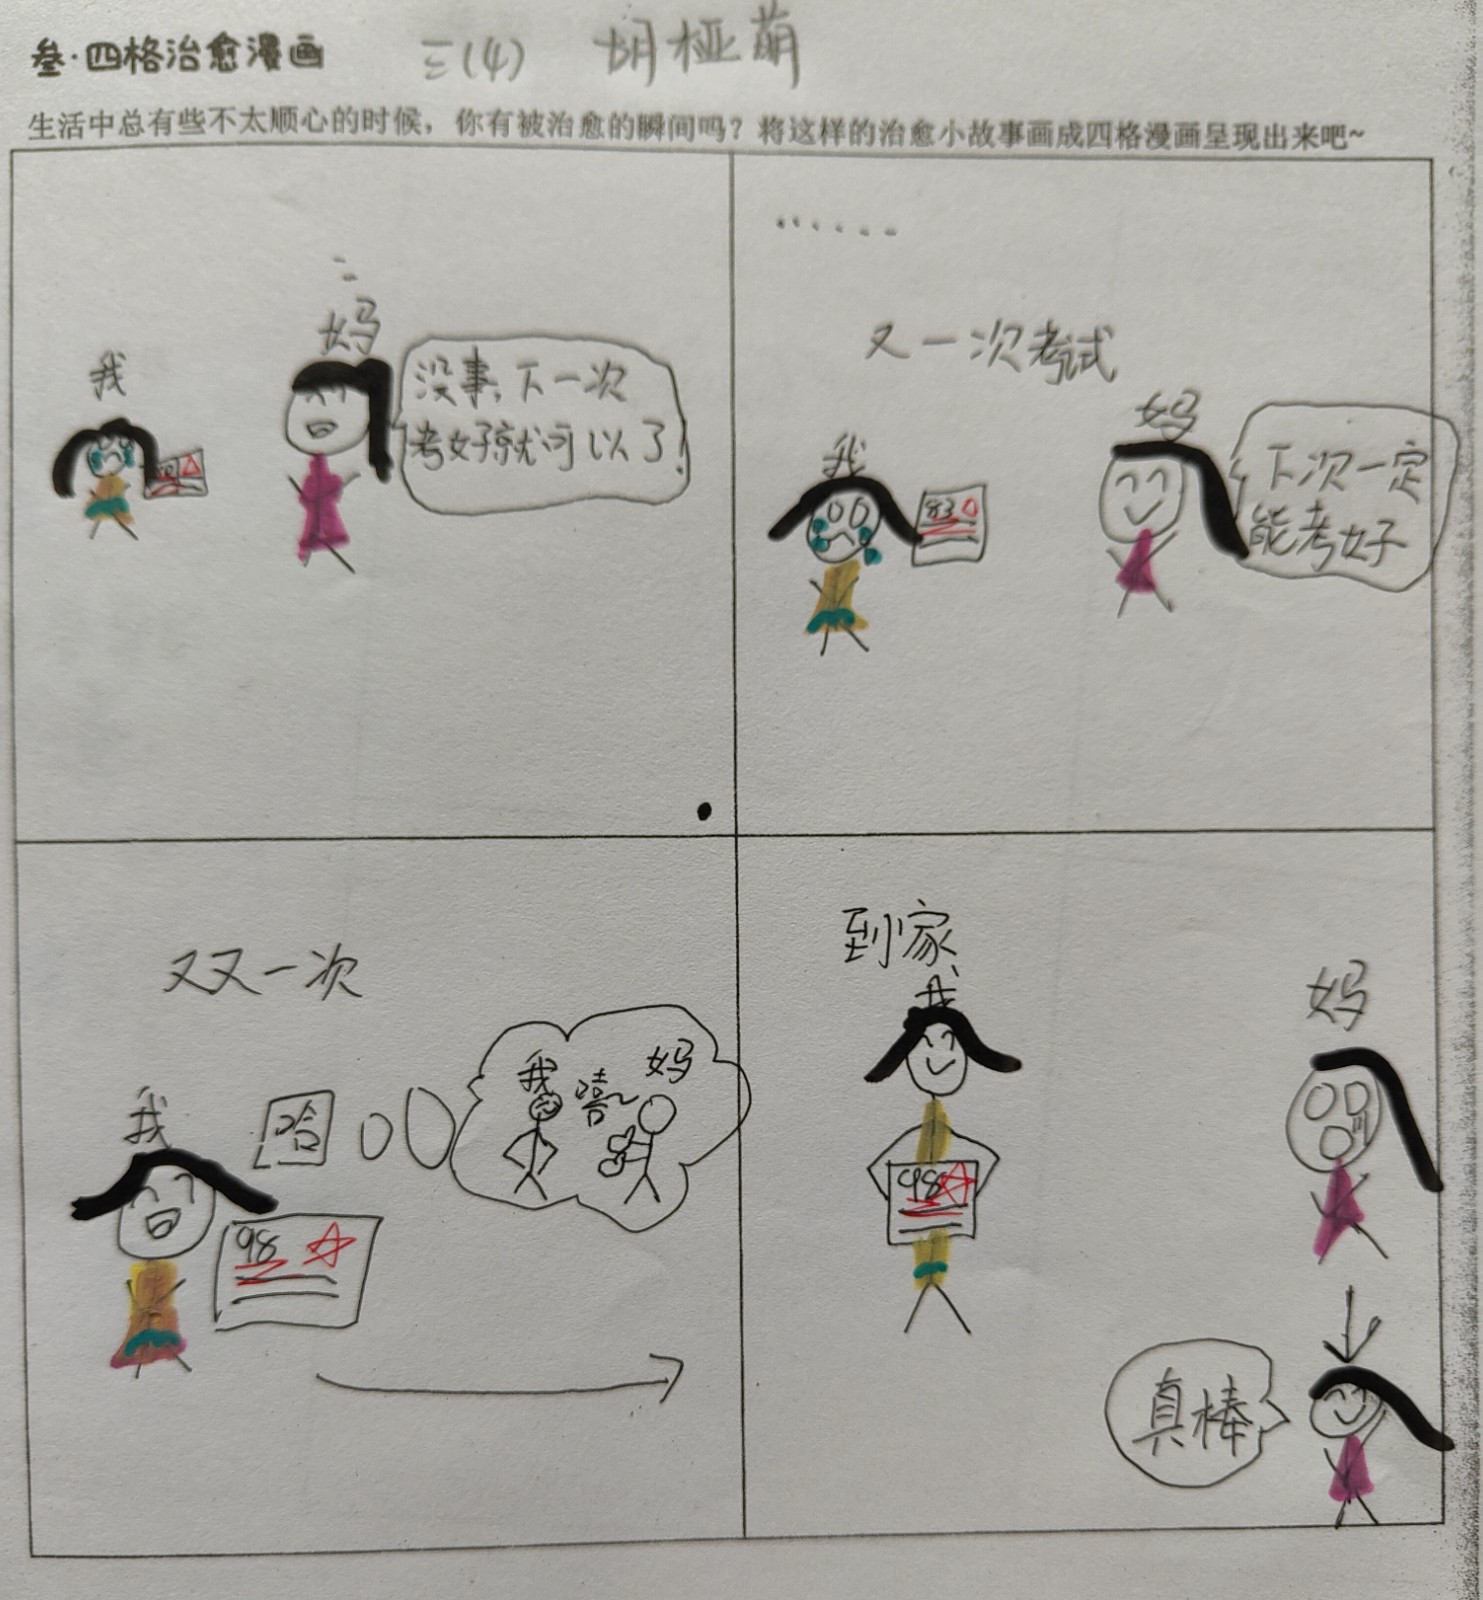 叁·四格治愈漫画
三(4) 胡桠萌
生活中总有些不太顺心的时候，你有被治愈的瞬间吗？将这样的治愈小故事画成四格漫画呈现出来吧~
妈
我
没事，下一次
考好就可以了！
......
又一次考试
妈
我
83
下次一定
能考好
又又一次
我
哈
我
嘻~
妈
98
到家
我
98
妈
真棒